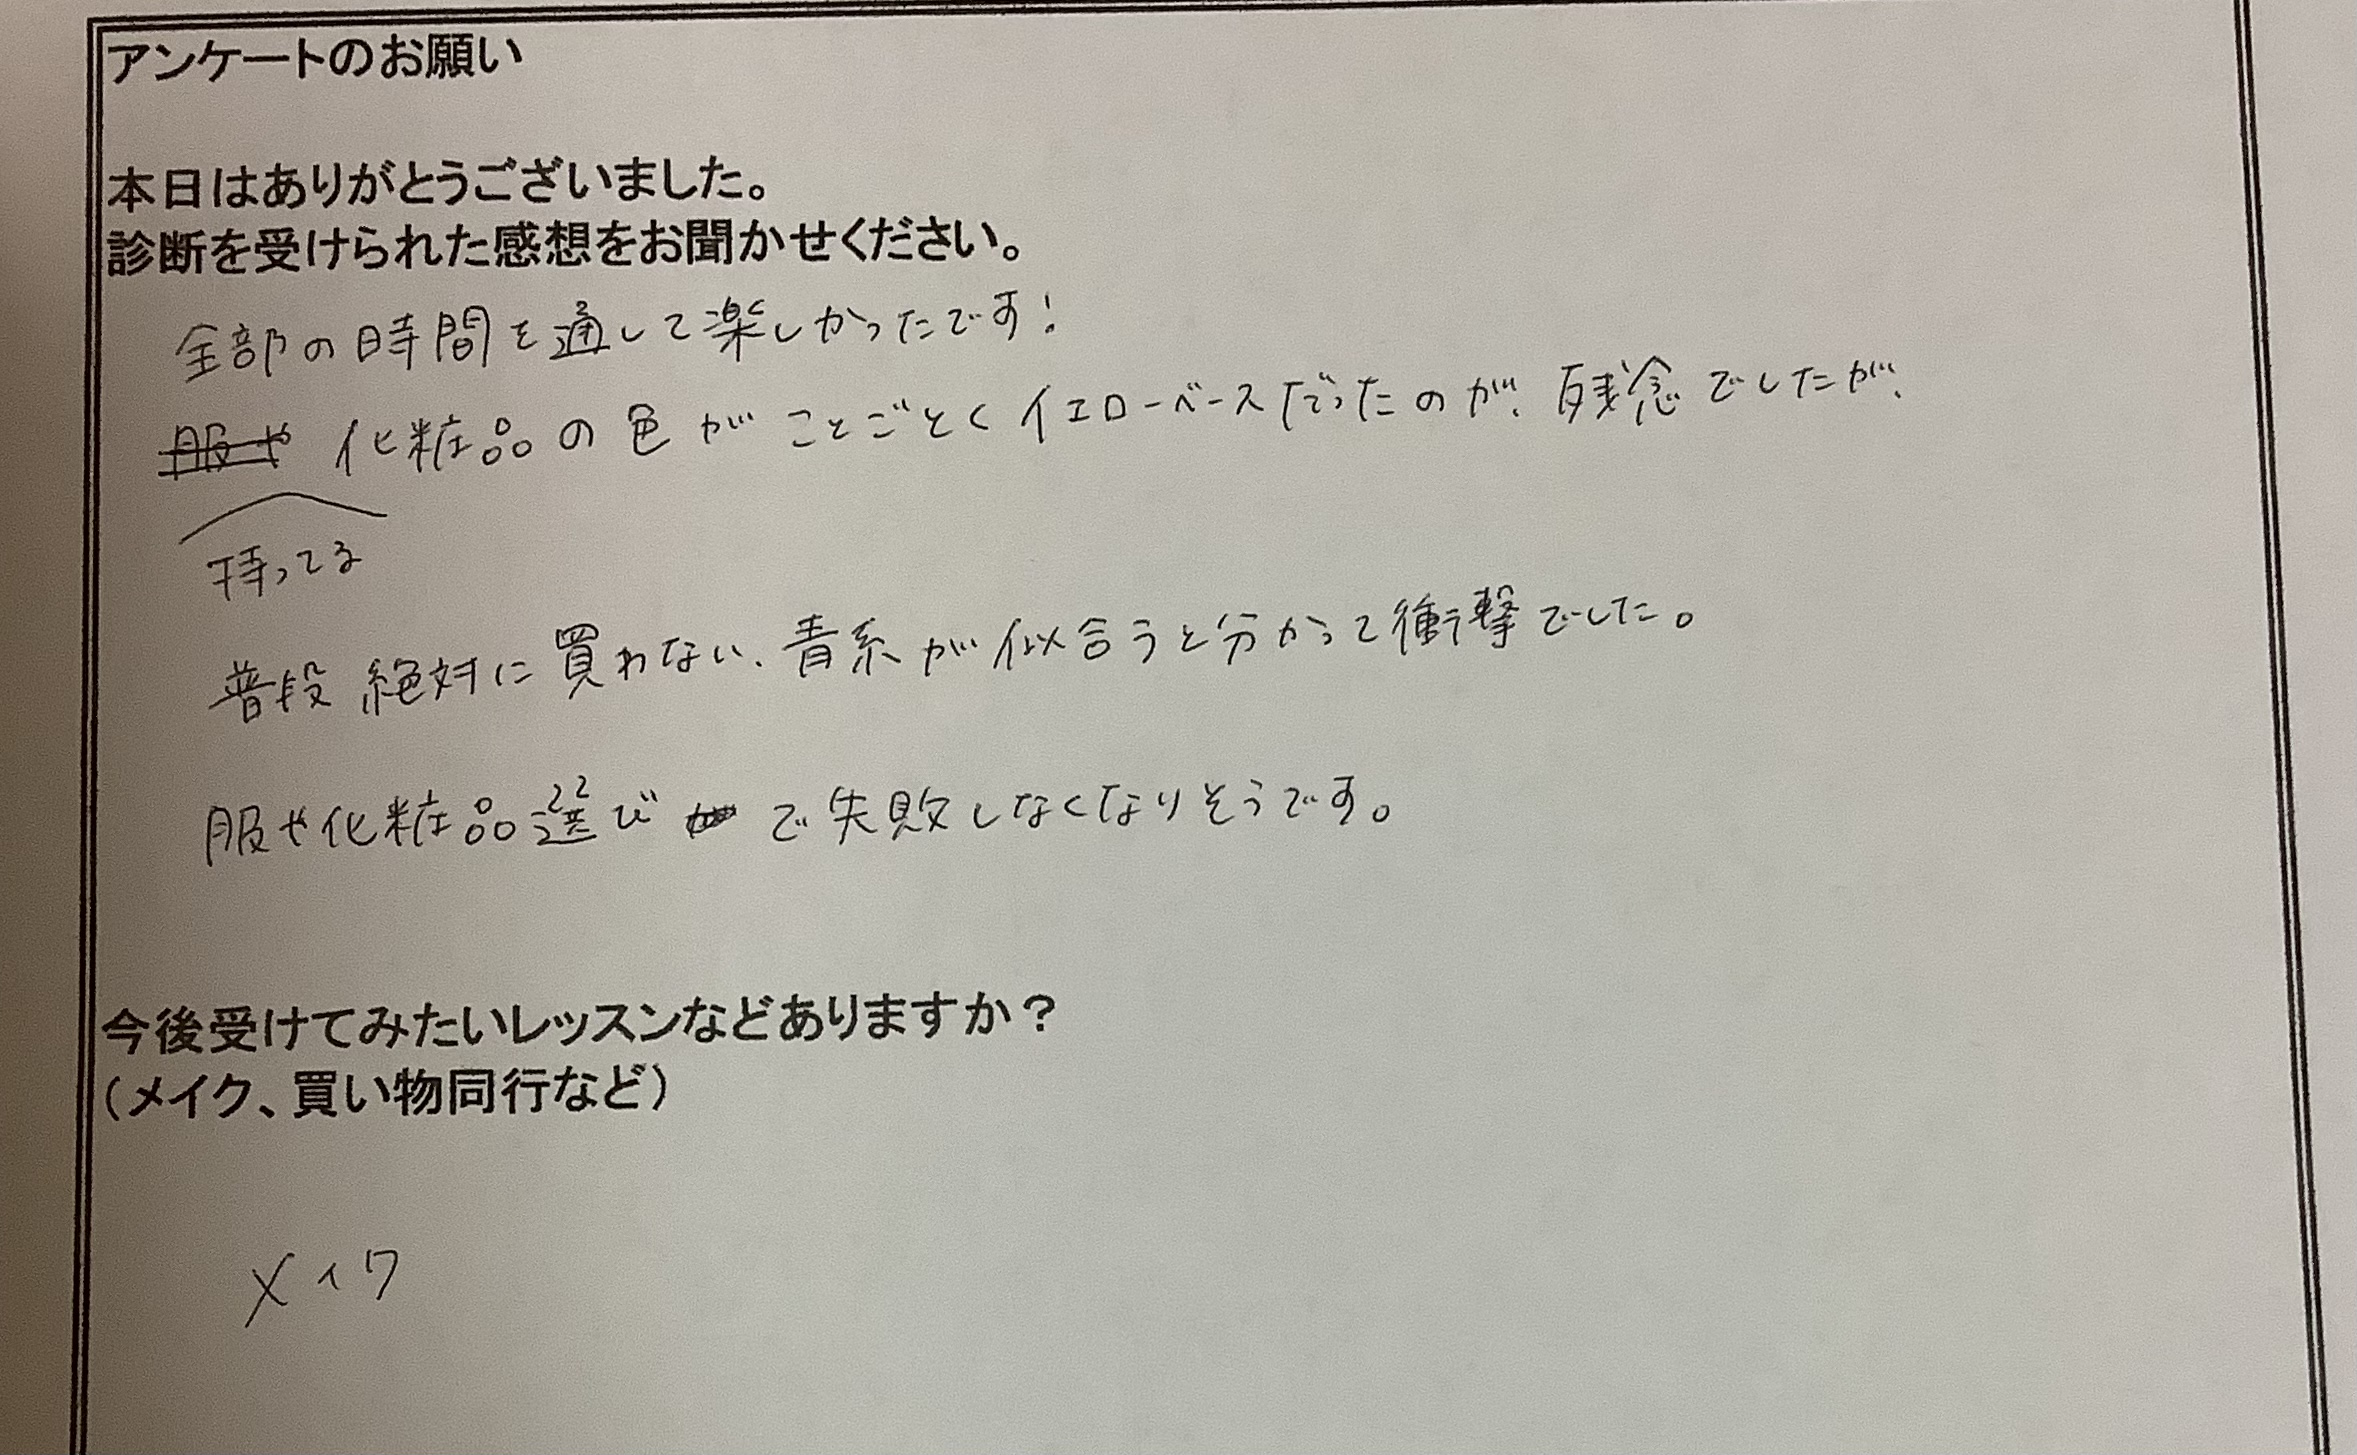 アンケートのお願い
本日はありがとうございました。
診断を受けられた感想をお聞かせください。
全部の時間を通して楽しかったです!
服や 化粧品の色がことごとくイエローベースだったのが、残念でしたが、
持ってる
普段 絶対に買わない、青系が似合うと分かって衝撃でした。
服や化粧品選びで失敗しなくなりそうです。
今後受けてみたいレッスンなどありますか?
(メイク、買い物同行など)
メイク